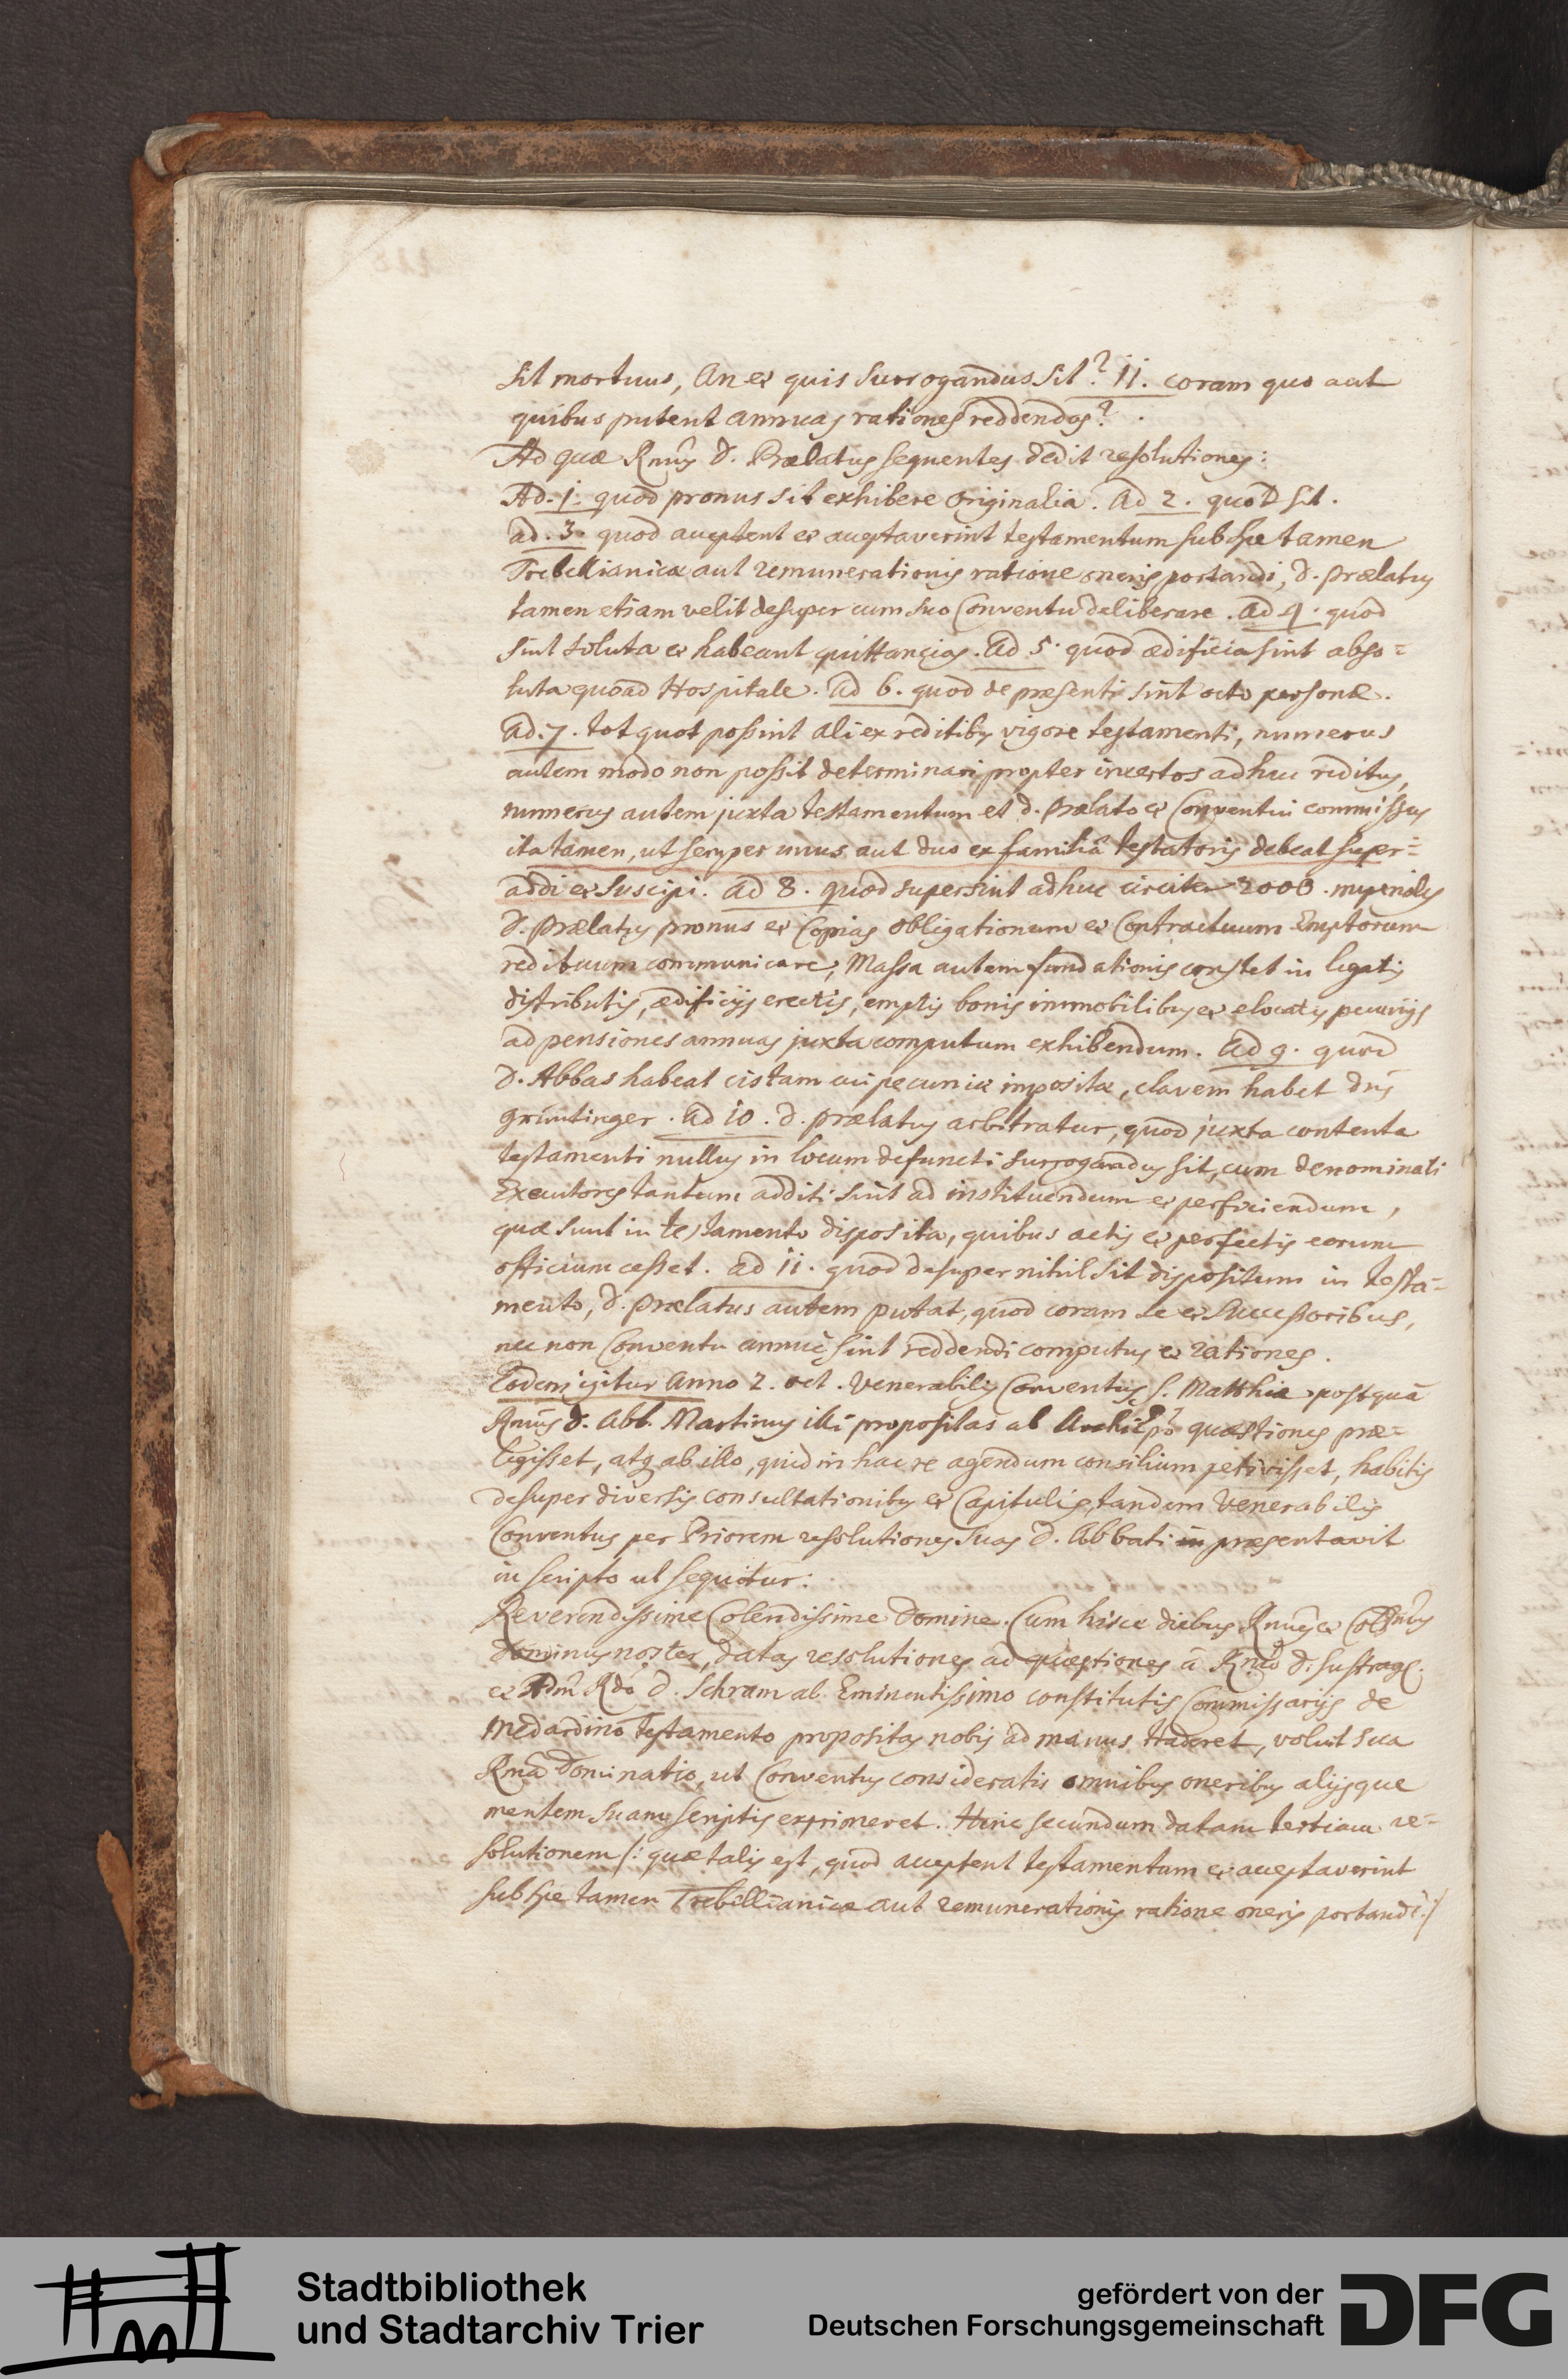 sit mortuus, An et quis surrogandus sit? 11. coram quo aut
quibus putent annuas rationes reddendas?
Ad quæ Rmus d. Prælatus sequentes dedit resolutiones:
Ad. 1. quod pronus sit exhibere originalia. Ad 2. quod sit.
ad. 3. quod acceptent et acceptaverint testamentum sub spe tamen
Trebellianicæ aut remunerationis ratione oneris portandi, d. prælatus
tamen etiam velit desuper cum suo Conventu deliberare. ad 4. quod
sint soluta et habeant quittancias. ad 5. quod ædificia sint abso=
luta quoad Hospitale. ad 6. quod de præsenti sint octo personæ.
ad. 7. tot quot possint ali ex reditibus vigore testamenti, numerus
autem modo non possit determinari propter incertos adhuc reditus,
numerus autem juxta testamentum et d. Prælato et Conventui commissus
ita tamen, ut semper unus aut duo ex familiâ testatoris debeat super=
addi et suscipi. ad 8. quod supersint adhuc circiter 2000. imperiales
d. Prælatus pronus et Copias obligationum et Contractuum Emptorum
redituum communicare; Massa autem fundationis constet in legatis
distributis, ædificijs erectis, emptis bonis immobilibus et elocatis pecunijs
ad pensiones annuas juxta computum exhibendum. Ad 9. quod
d. Abbas habeat cistam cui pecuniæ impositæ, clavem habet dns
Grüntinger. ad 10. d. prælatus arbitratur, quod juxta contenta
testamenti nullus in locum defuncti surrogandus sit, cum denominati
Executores tantum additi sint ad instituendum et perficiendum,
quæ sunt in testamento disposita, quibus actis et perfectis eorum
officium cesset. ad 11. quod desuper nihil sit dispositum in testa=
mento, d. prælatus autem putat, quod coram se et successoribus,
nec non Conventu annuè sint reddendi computus et rationes.
Eodem igitur Anno 2. oct. Venerabilis Conventus S. Matthiæ postquã
Rmus d. Abb. Martinus illi propositas ab Archiepo quæstiones præ=
legisset, atq ab illo, quid in hac re agendum consilium petivisset, habitis
desuper diversis consultationibus et Capitulis, tandem Venerabilis
Conventus per Priorem resolutiones suas d. Abbati in præsentavit
in scripto ut sequitur:
Reverendissime Colendissime Domine. Cum hisce diebus Rmus et Colssmus
dominus noster, datas resolutiones ad quæstiones â Rmo d. suffrag.
et Adm Rdo d. Schram ab Eminentissimo constitutis Commissarijs de
Medardino testamento propositas nobis ad manus traderet, voluit sua
Rma Dominatio, ut Conventus consideratis omnibus oneribus alijsque
mentem suam scriptis exprimeret. Hinc secundum datam tertiam re=
solutionem /: quæ talis est, quod acceptent testamentum et acceptaverint
sub spe tamen Trebellianicæ aut remunerationis ratione oneris portandi:/
Stadtbibliothek
und Stadtarchiv Trier
gefördert von der
Deutschen Forschungsgemeinschaft
DFG